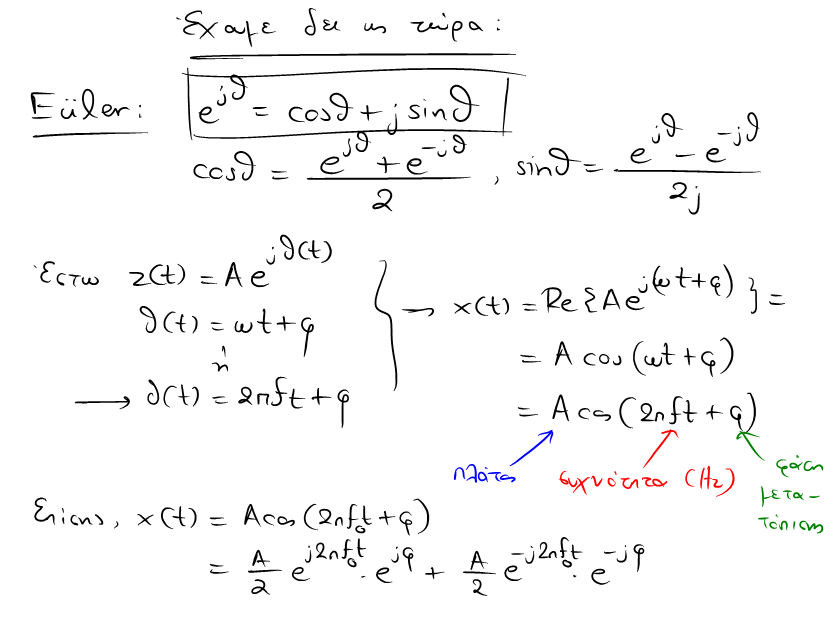 Έχαμε δει ως τώρα:
Eüler: e^{jϑ} = cosϑ + j sinϑ
cosϑ = \frac{e^{jϑ} + e^{-jϑ}}{2} , sinϑ = \frac{e^{jϑ} - e^{-jϑ}}{2j}
Έστω z(t) = A e^{jϑ(t)}
ϑ(t) = ωt + φ
ή
→ ϑ(t) = 2πft + φ
→ x(t) = Re{A e^{j(ωt+φ)}} =
= A cos(ωt + φ)
= A cos(2πft + φ)
πλάτος
συχνότητα (Hz)
φάση
μετα-
τόπιση
Επίσης, x(t) = A cos(2πf₀t + φ)
= \frac{A}{2} e^{j2πf₀t} · e^{jφ} + \frac{A}{2} e^{-j2πf₀t} · e^{-jφ}